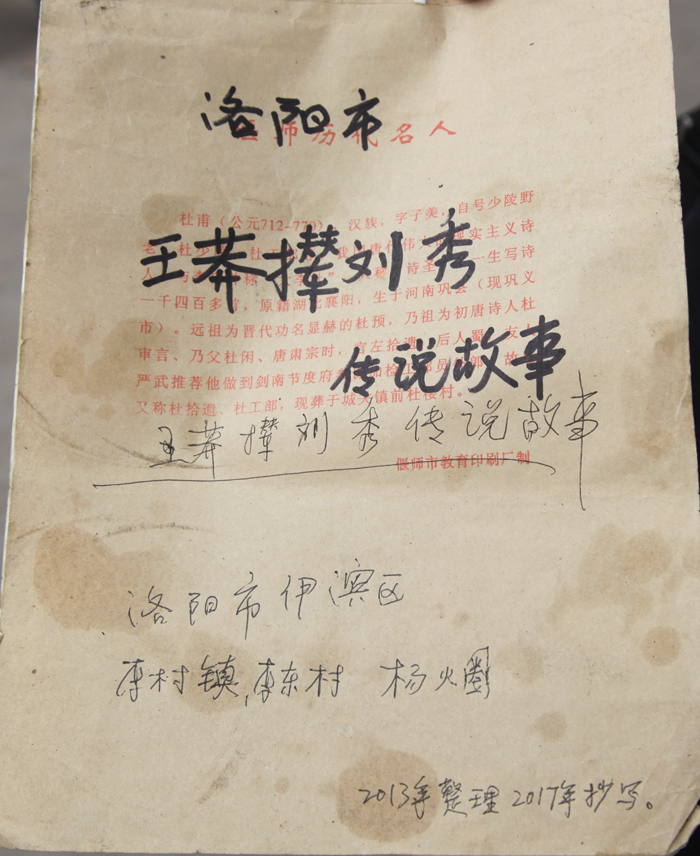 洛阳市
偃师历代名人
杜甫(公元712-770),汉族,字子美,自号少陵野
王莽撵刘秀
一千四百多首,原籍湖北襄阳,生于河南巩县(现巩义
市)。远祖为晋代功名显赫的杜预,乃祖为初唐诗人杜
审言、乃父杜闲、唐肃宗时,官左拾遗。后入蜀,友人
传说故事
严武推荐他做到剑南节度府
又称杜拾遗、杜工部,现葬于城关镇前杜楼村。
王莽撵刘秀传说故事
偃师市教育印刷厂制
洛阳市伊滨区
李村镇,李东村 杨火圈
2013年整理2017年抄写。